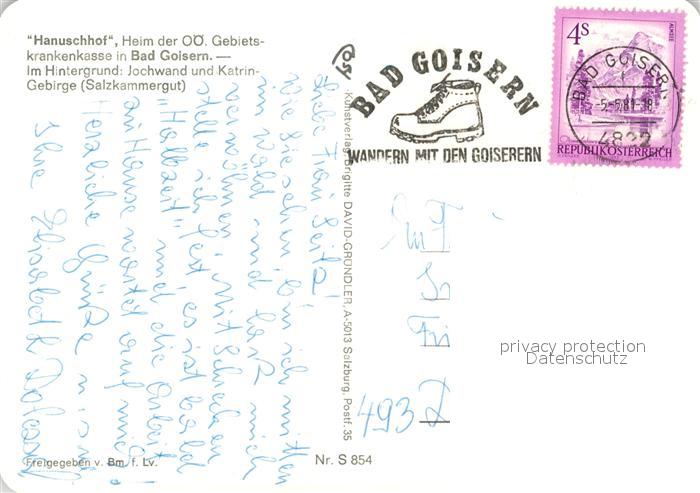 "Hanuschhof", Heim der OÖ. Gebiets-
krankenkasse in Bad Goisern. —
Im Hintergrund: Jochwand und Katrin-
Gebirge (Salzkammergut)
Liebe Frau Seitz!
Wie Sie sehen bin ich mitten
im Wald und laß mich
verwöhnen. Mit Schrecken
stelle ich fest, es ist bald
"Halbzeit" und die Arbeit
zu Hause wartet auf mich!
Herzliche Grüße
Ihre
Freigegeben v. Bm. f. Lv.
Nr. S 854
Kunstverlag Brigitte DAVID-GRÜNDLER, A-5013 Salzburg, Postf. 35
BAD GOISERN
WANDERN MIT DEN GOISERERN
4S
ALMSEE
BAD GOISERN
-5.-5.81-18
4822
REPUBLIK ÖSTERREICH
493
privacy protection
Datenschutz